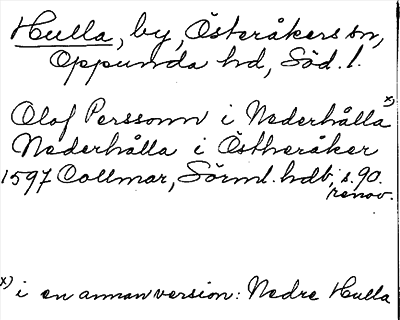 Hulla, by, Österåkers sn,
Oppunda hd, Söd. l.
Olof Personn i Nederhålla x)
Nederhålla i Östheråker
1597 Collmar, Sörml. hdb, s. 90.
renov.
x) i en annan version: Nedre Hulla